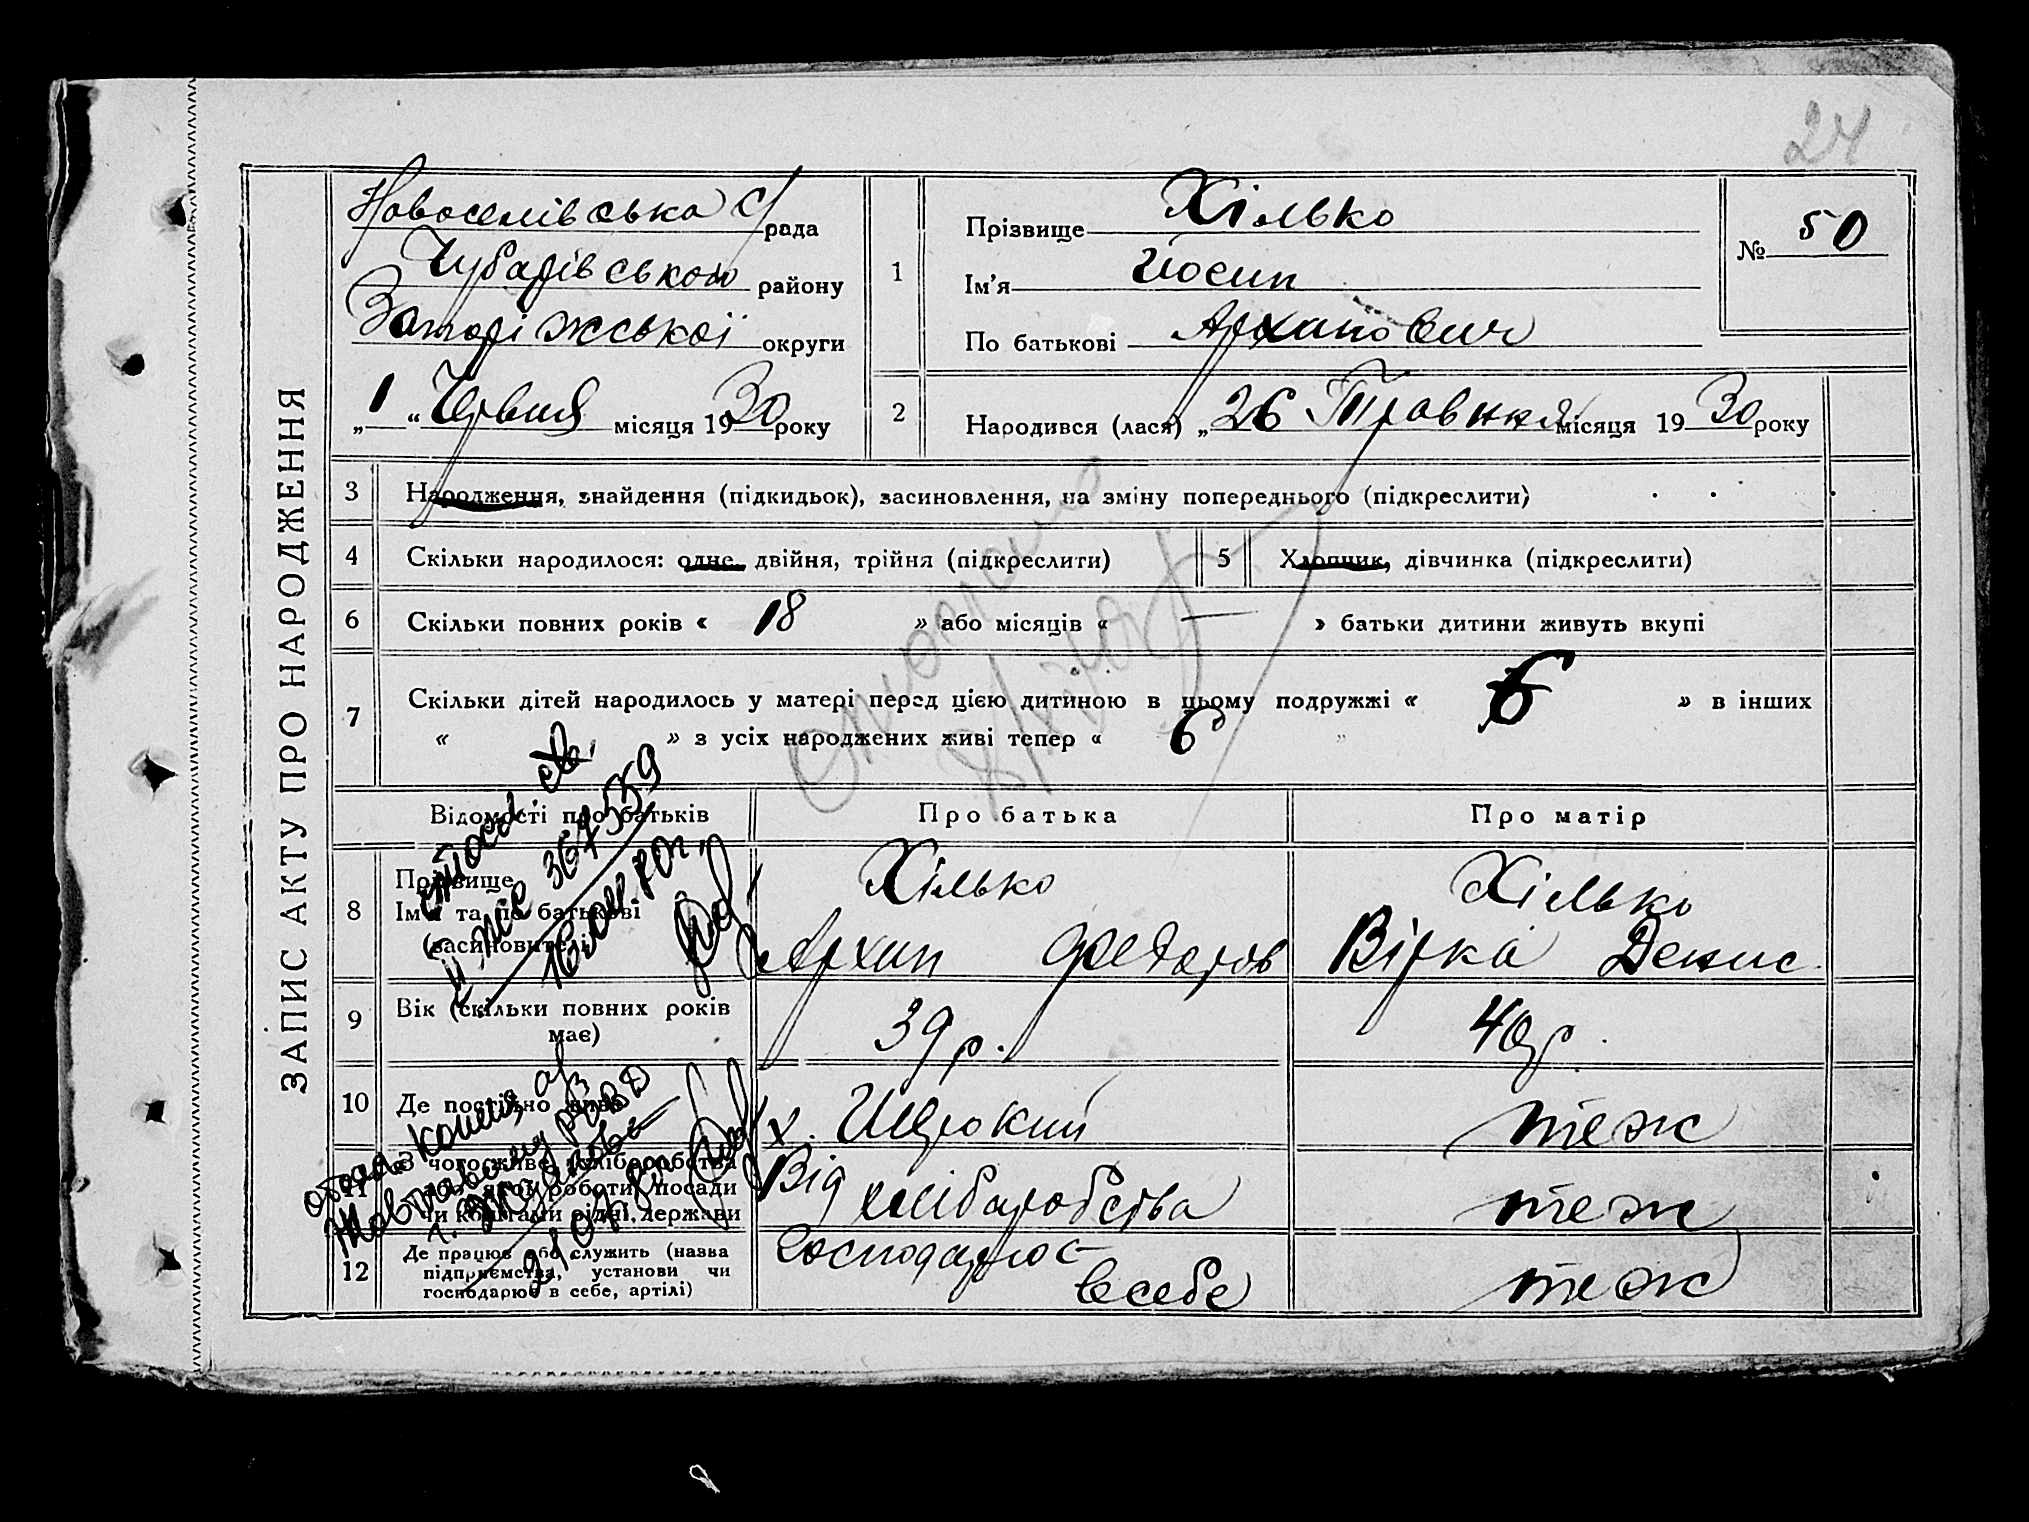 24
ЗАПИС АКТУ ПРО НАРОДЖЕННЯ
Новоселівська с/рада
Чубарівського району
Запоріжської округи
„1“ Червня місяця 1930 року
1
Прізвище Хілько
Ім'я Йосип
По батькові Архипович
№ 50
2
Народився (лася) „26 Травня місяця 1930 року
3 Народження, знайдення (підкидьок), засиновлення, на зміну попереднього (підкреслити)
4 Скільки народилося: одне, двійня, трійня (підкреслити)
5 Хлопчик, дівчинка (підкреслити)
6 Скільки повних років « 18 » або місяців « — » батьки дитини живуть вкупі
7 Скільки дітей народилось у матері перед цією дитиною в цьому подружжі « 6 » в інших
« » з усіх народжених живі тепер « 6 »
Відомості про батьків
Про батька
Про матір
8 Прізвище
Ім'я та по батькові
(засиновителі)
Хілько
Архип Федоров
Хілько
Вірка Денис.
9 Вік (скільки повних років
має)
39 р.
40 р.
10 Де постійно живе
х. Широкий
теж
11 З чого живе, хліборобства
або якої роботи, посади
чи коштами рідні, держави
Від хліборобства
теж
12 Де працює або служить (назва
підприємства, установи чи
господарює в себе, артілі)
Господарює
в себе
теж
367559
копия
РОВД